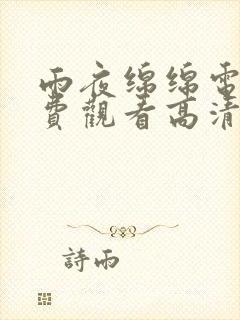 雨夜綿綿電
費觀看高清
詩雨